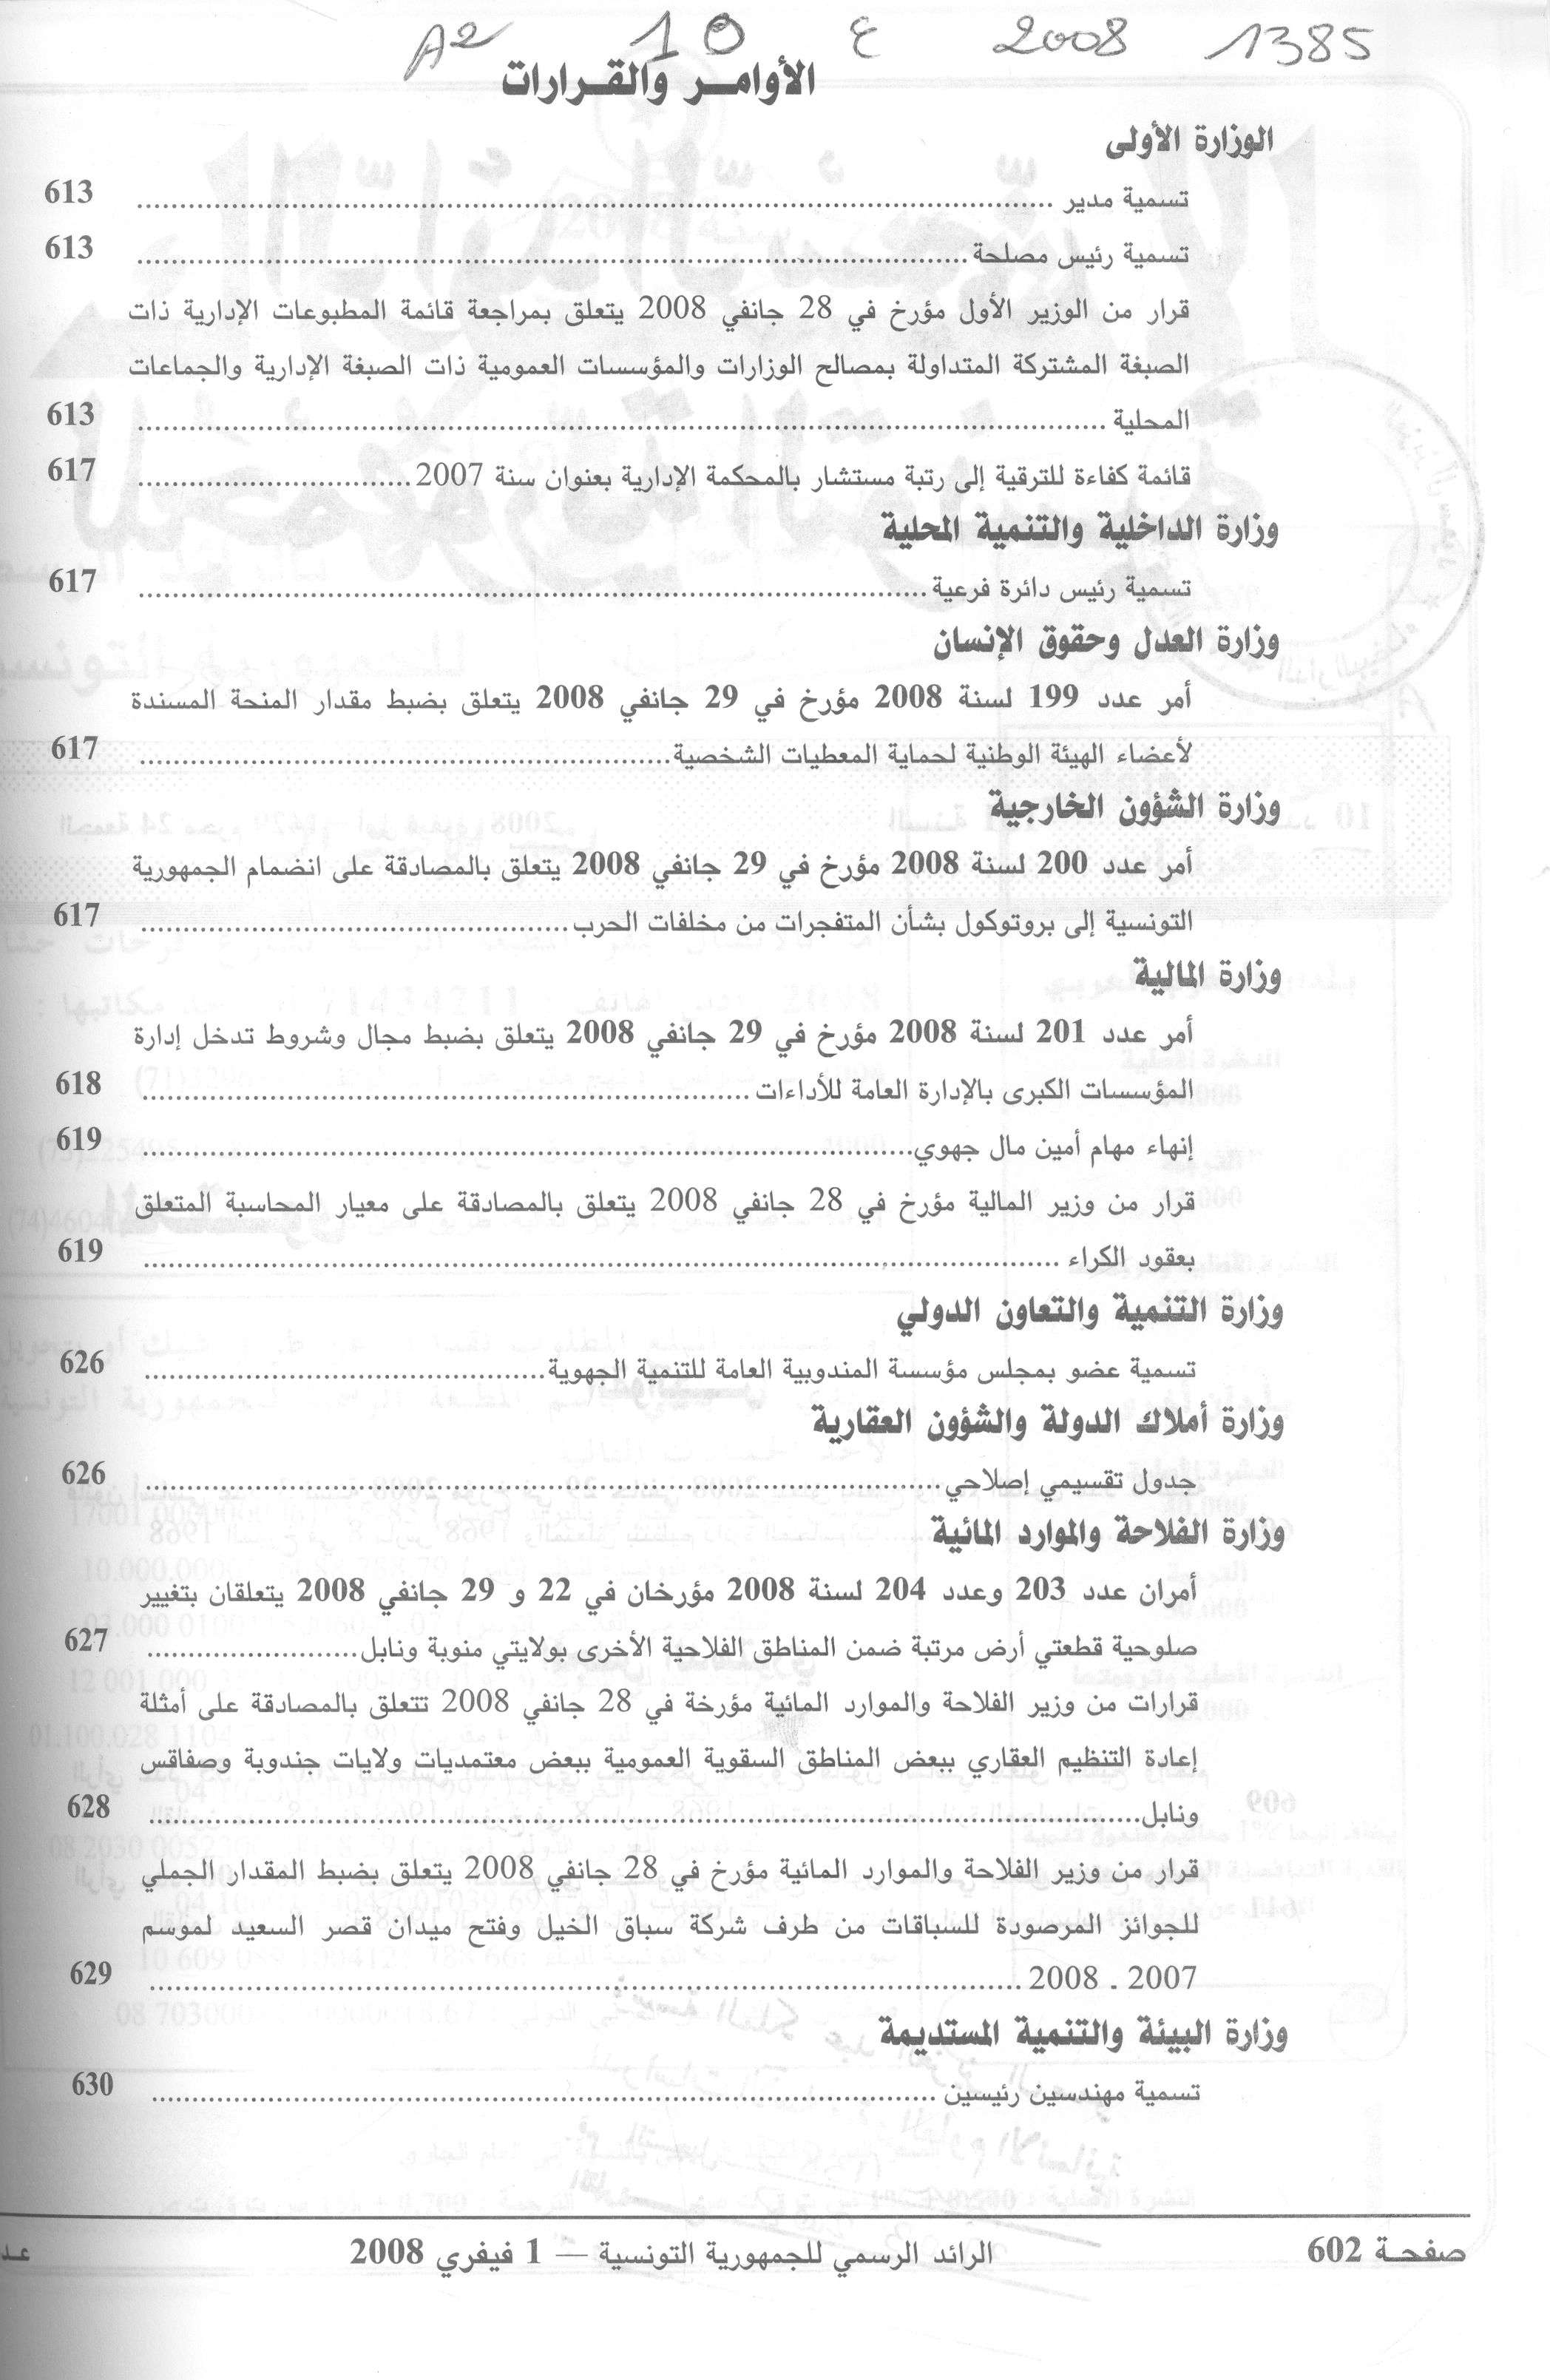 1385 2008 ع 10 A2
الأوامـر والقـرارات
الوزارة الأولى
تسمية مدير ............ 613
تسمية رئيس مصلحة ............ 613
قرار من الوزير الأول مؤرخ في 28 جانفي 2008 يتعلق بمراجعة قائمة المطبوعات الإدارية ذات
الصبغة المشتركة المتداولة بمصالح الوزارات والمؤسسات العمومية ذات الصبغة الإدارية والجماعات
المحلية ............ 613
قائمة كفاءة للترقية إلى رتبة مستشار بالمحكمة الإدارية بعنوان سنة 2007 ............ 617
وزارة الداخلية والتنمية المحلية
تسمية رئيس دائرة فرعية ............ 617
وزارة العدل وحقوق الإنسان
أمر عدد 199 لسنة 2008 مؤرخ في 29 جانفي 2008 يتعلق بضبط مقدار المنحة المسندة
لأعضاء الهيئة الوطنية لحماية المعطيات الشخصية ............ 617
وزارة الشؤون الخارجية
أمر عدد 200 لسنة 2008 مؤرخ في 29 جانفي 2008 يتعلق بالمصادقة على انضمام الجمهورية
التونسية إلى بروتوكول بشأن المتفجرات من مخلفات الحرب ............ 617
وزارة المالية
أمر عدد 201 لسنة 2008 مؤرخ في 29 جانفي 2008 يتعلق بضبط مجال وشروط تدخل إدارة
المؤسسات الكبرى بالإدارة العامة للأداءات ............ 618
إنهاء مهام أمين مال جهوي ............ 619
قرار من وزير المالية مؤرخ في 28 جانفي 2008 يتعلق بالمصادقة على معيار المحاسبة المتعلق
بعقود الكراء ............ 619
وزارة التنمية والتعاون الدولي
تسمية عضو بمجلس مؤسسة المندوبية العامة للتنمية الجهوية ............ 626
وزارة أملاك الدولة والشؤون العقارية
جدول تقسيمي إصلاحي ............ 626
وزارة الفلاحة والموارد المائية
أمران عدد 203 وعدد 204 لسنة 2008 مؤرخان في 22 و 29 جانفي 2008 يتعلقان بتغيير
صلوحية قطعتي أرض مرتبة ضمن المناطق الفلاحية الأخرى بولايتي منوبة ونابل ............ 627
قرارات من وزير الفلاحة والموارد المائية مؤرخة في 28 جانفي 2008 تتعلق بالمصادقة على أمثلة
إعادة التنظيم العقاري ببعض المناطق السقوية العمومية ببعض معتمديات ولايات جندوبة وصفاقس
ونابل ............ 628
قرار من وزير الفلاحة والموارد المائية مؤرخ في 28 جانفي 2008 يتعلق بضبط المقدار الجملي
للجوائز المرصودة للسباقات من طرف شركة سباق الخيل وفتح ميدان قصر السعيد لموسم
2007 ـ 2008 ............ 629
وزارة البيئة والتنمية المستديمة
تسمية مهندسين رئيسين ............ 630
صفحـة 602 الرائد الرسمي للجمهورية التونسية — 1 فيفري 2008